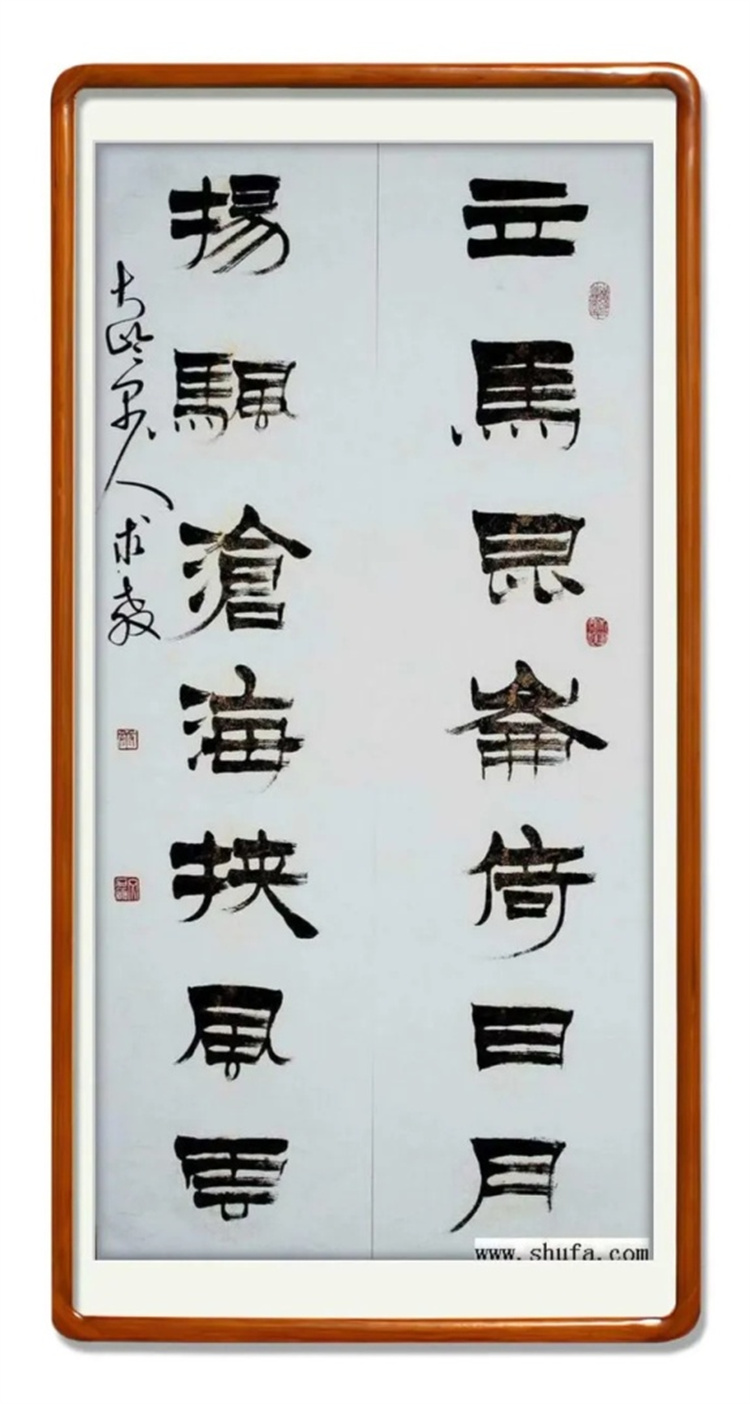 立馬昆崙倚日月
揚颿滄海挾風雲
人求教
www.shufa.com